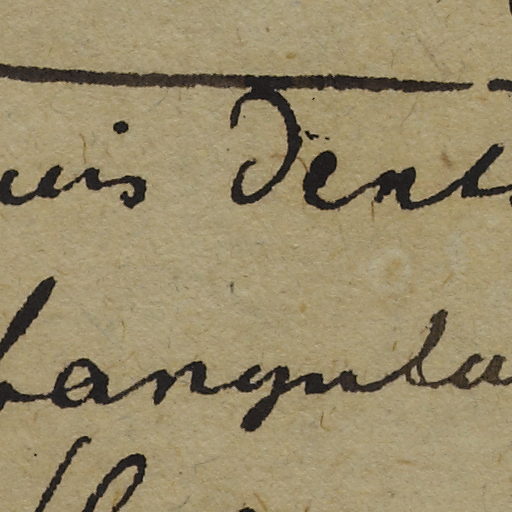 uis dent
langula